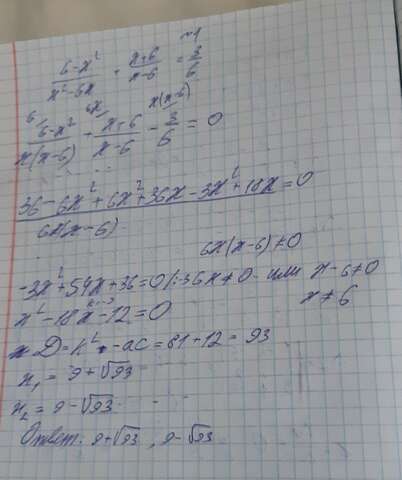 №1
6-x²/x²-6x + x+6/x-6 = 3/6
6/ 6x/ x(x-6)/
6-x²/x(x-6) + x+6/x-6 - 3/6 = 0
36-6x²+6x²+36x-3x²+18x/6x(x-6) = 0
6x(x-6)≠0
-3x²+54x+36=0/:-3 6x≠0 или x-6≠0
x²-18x-12=0 x≠6
D=k²-ac=81+12=93
x₁=9+√93
x₂=9-√93
Ответ: 9+√93, 9-√93